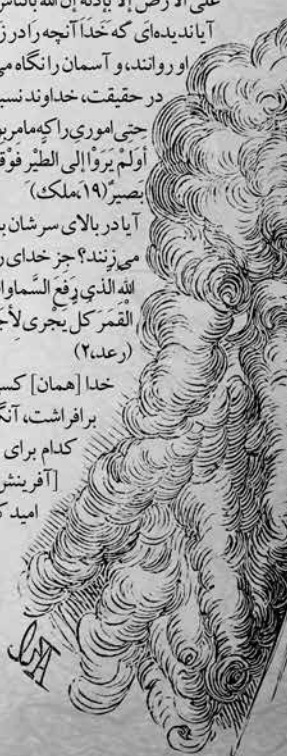 علی الأرض إلا بإذنه إن الله بالناس
آیا ندیده‌ای که خدا آنچه را در ز
او روانند، و آسمان را نگاه می
در حقیقت، خداوند نسبـ
حتی اموری را که ما مر بو
أولَمْ يَرَوْا إلى الطَّيْر فَوْقَ
بصيرٌ(۱۹،ملک)
آیا در بالای سرشان بـ
می‌زنند؟ جز خدای ر
الله الذي رفع السَّماوا
القَمَرَ كل يَجْرى لأجـ
(رعد،۲)
خدا [همان] کسـ
برافراشت، آنگـ
کدام برای
[آفرینش
امید کـ